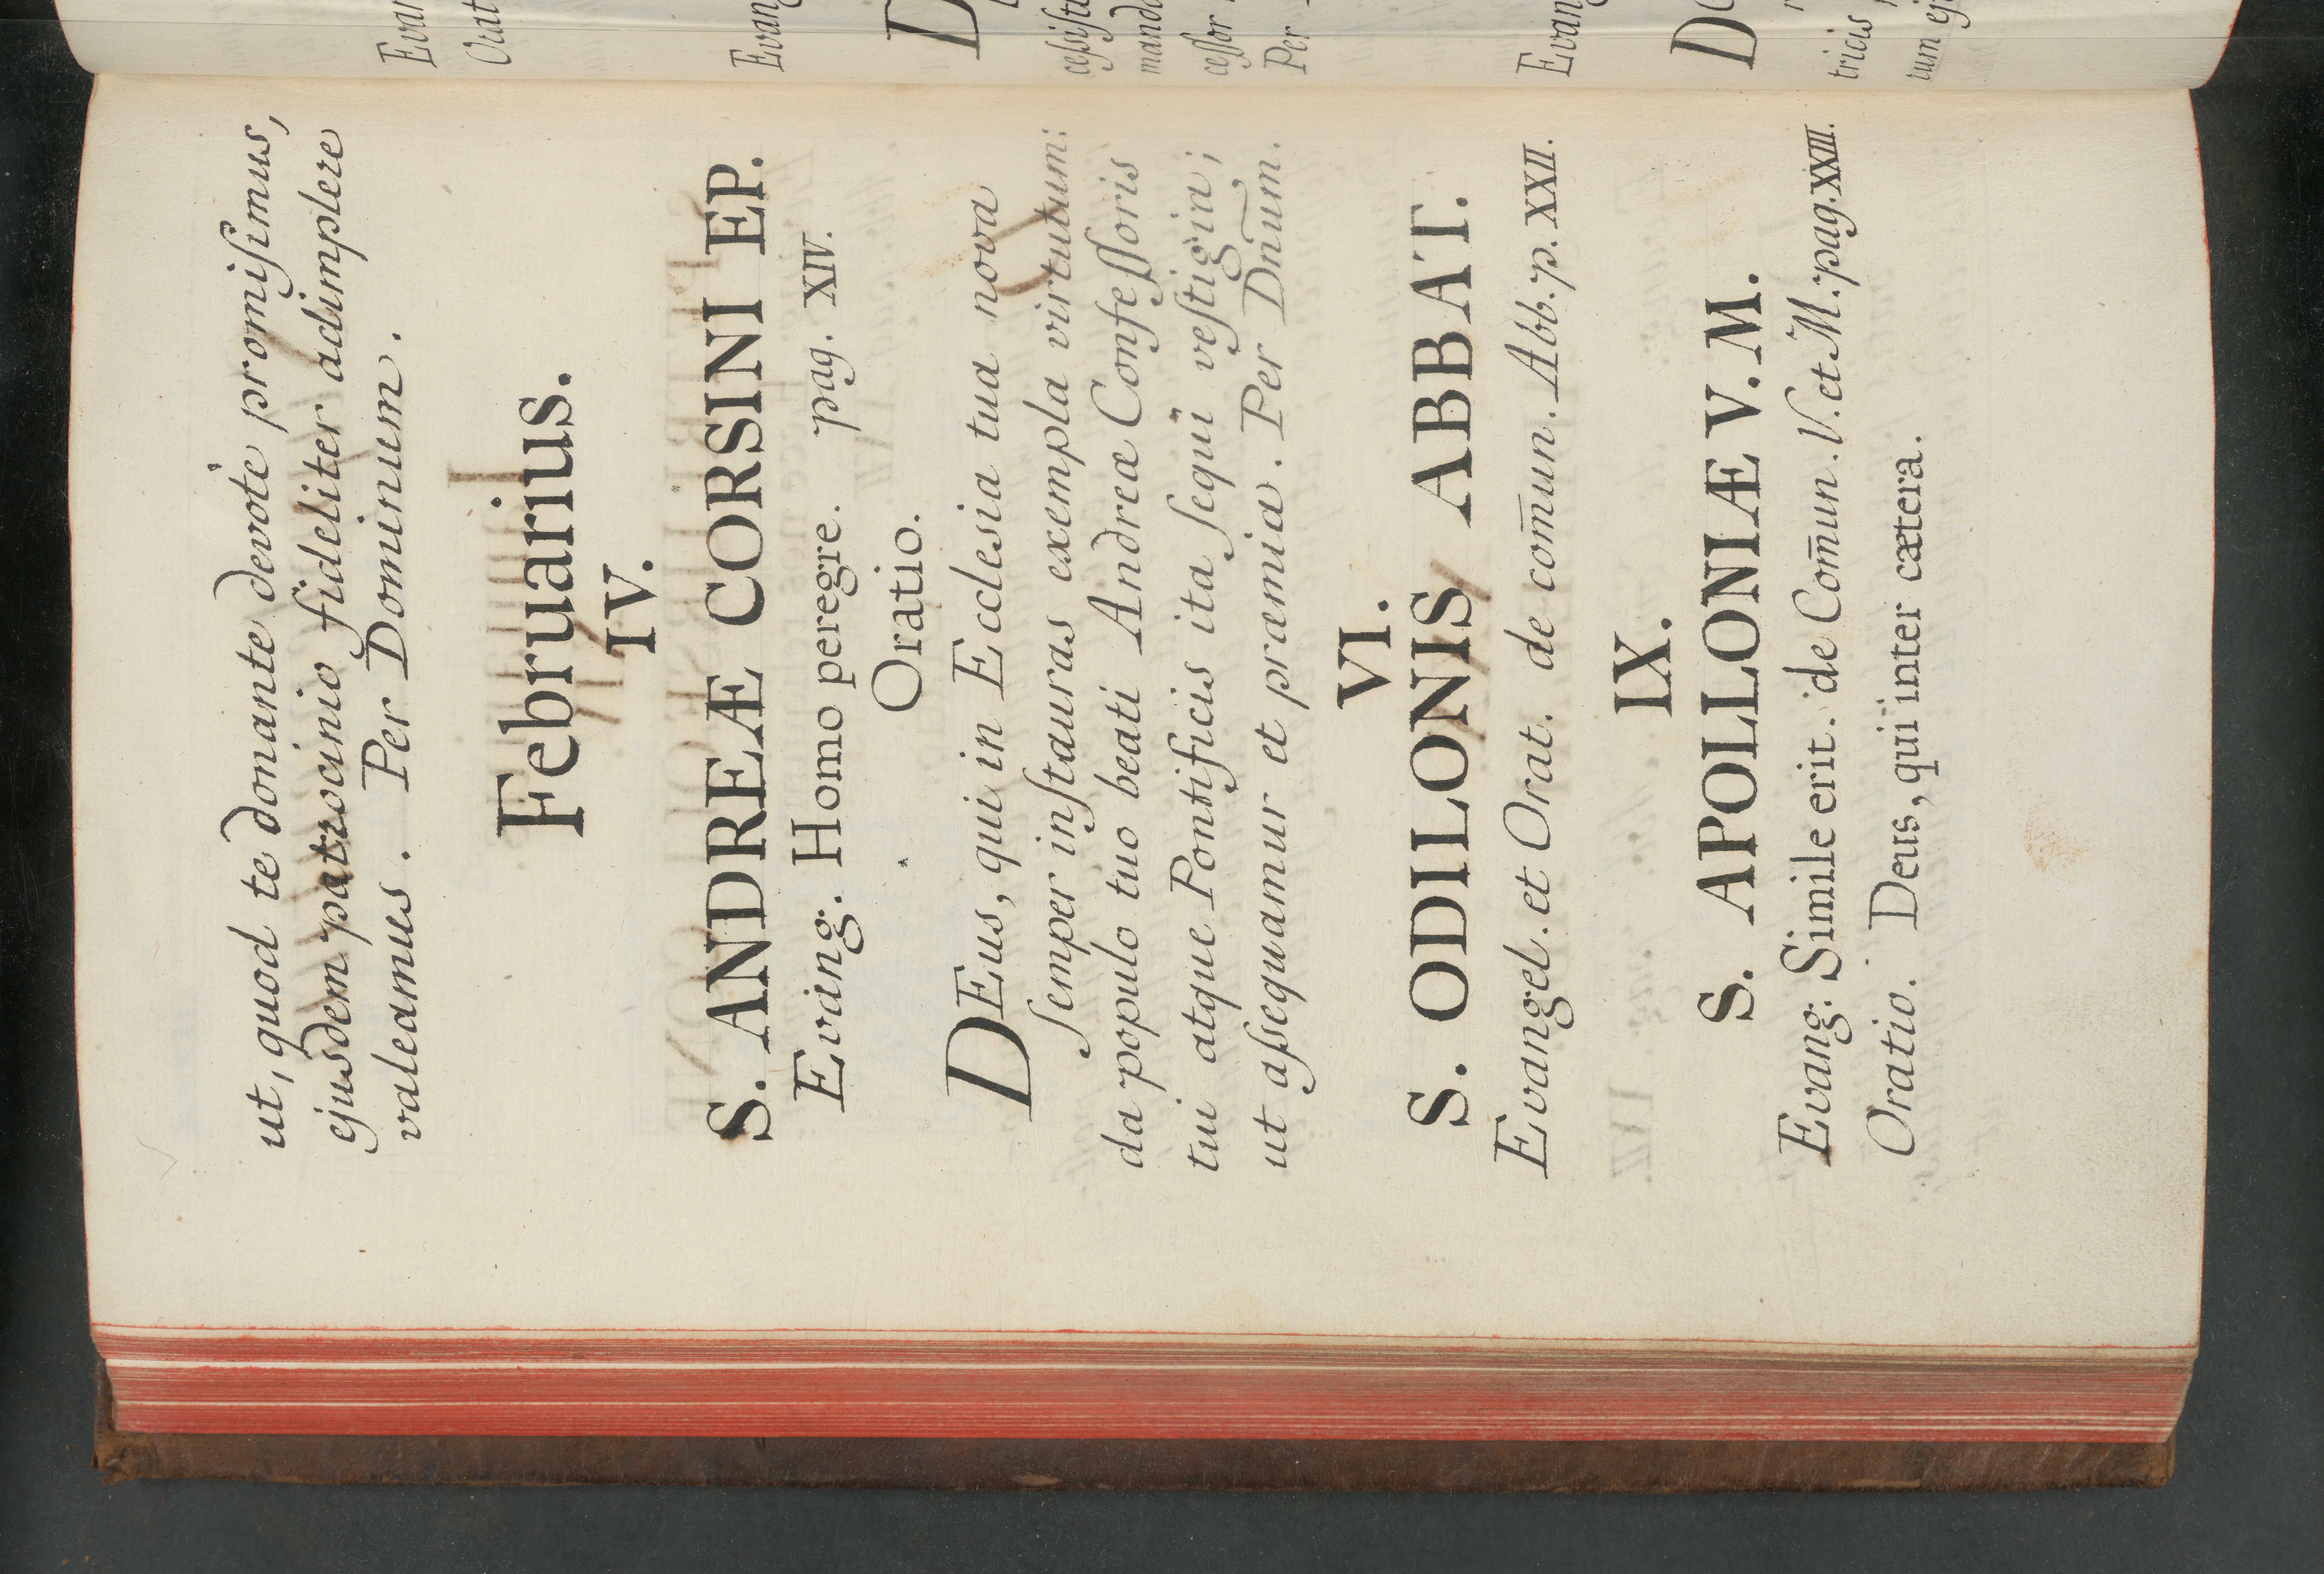 ut, quod te donante devote promiſimus,
ejusdem patrocinio fideliter adimplere
valeamus. Per Dominum.
Februarius.
IV.
S. ANDREÆ CORSINI EP.
Evang. Homo peregre. pag. XIV.
Oratio.
DEus, qui in Ecclesia tua nova
ſemper inſtauras exempla virtutum:
da populo tuo beati Andreæ Confeſſoris
tui atque Pontificis ita ſequi veſtigia;
ut aſsequamur et præmia. Per Dn̄um.
VI.
S. ODILONIS ABBAT.
Evangel. et Orat. de com̄un. Abb. p. XXII.
IX.
S. APOLLONIÆ V. M.
Evang: Simile erit. de Com̄un. V. et M. pag. XXIII.
Oratio. Deus, qui inter cætera.
Evan
Orat
Evang
D
ceſsiſti
manda
ceſſor
Per
Evang
Do
tricis
tum ej